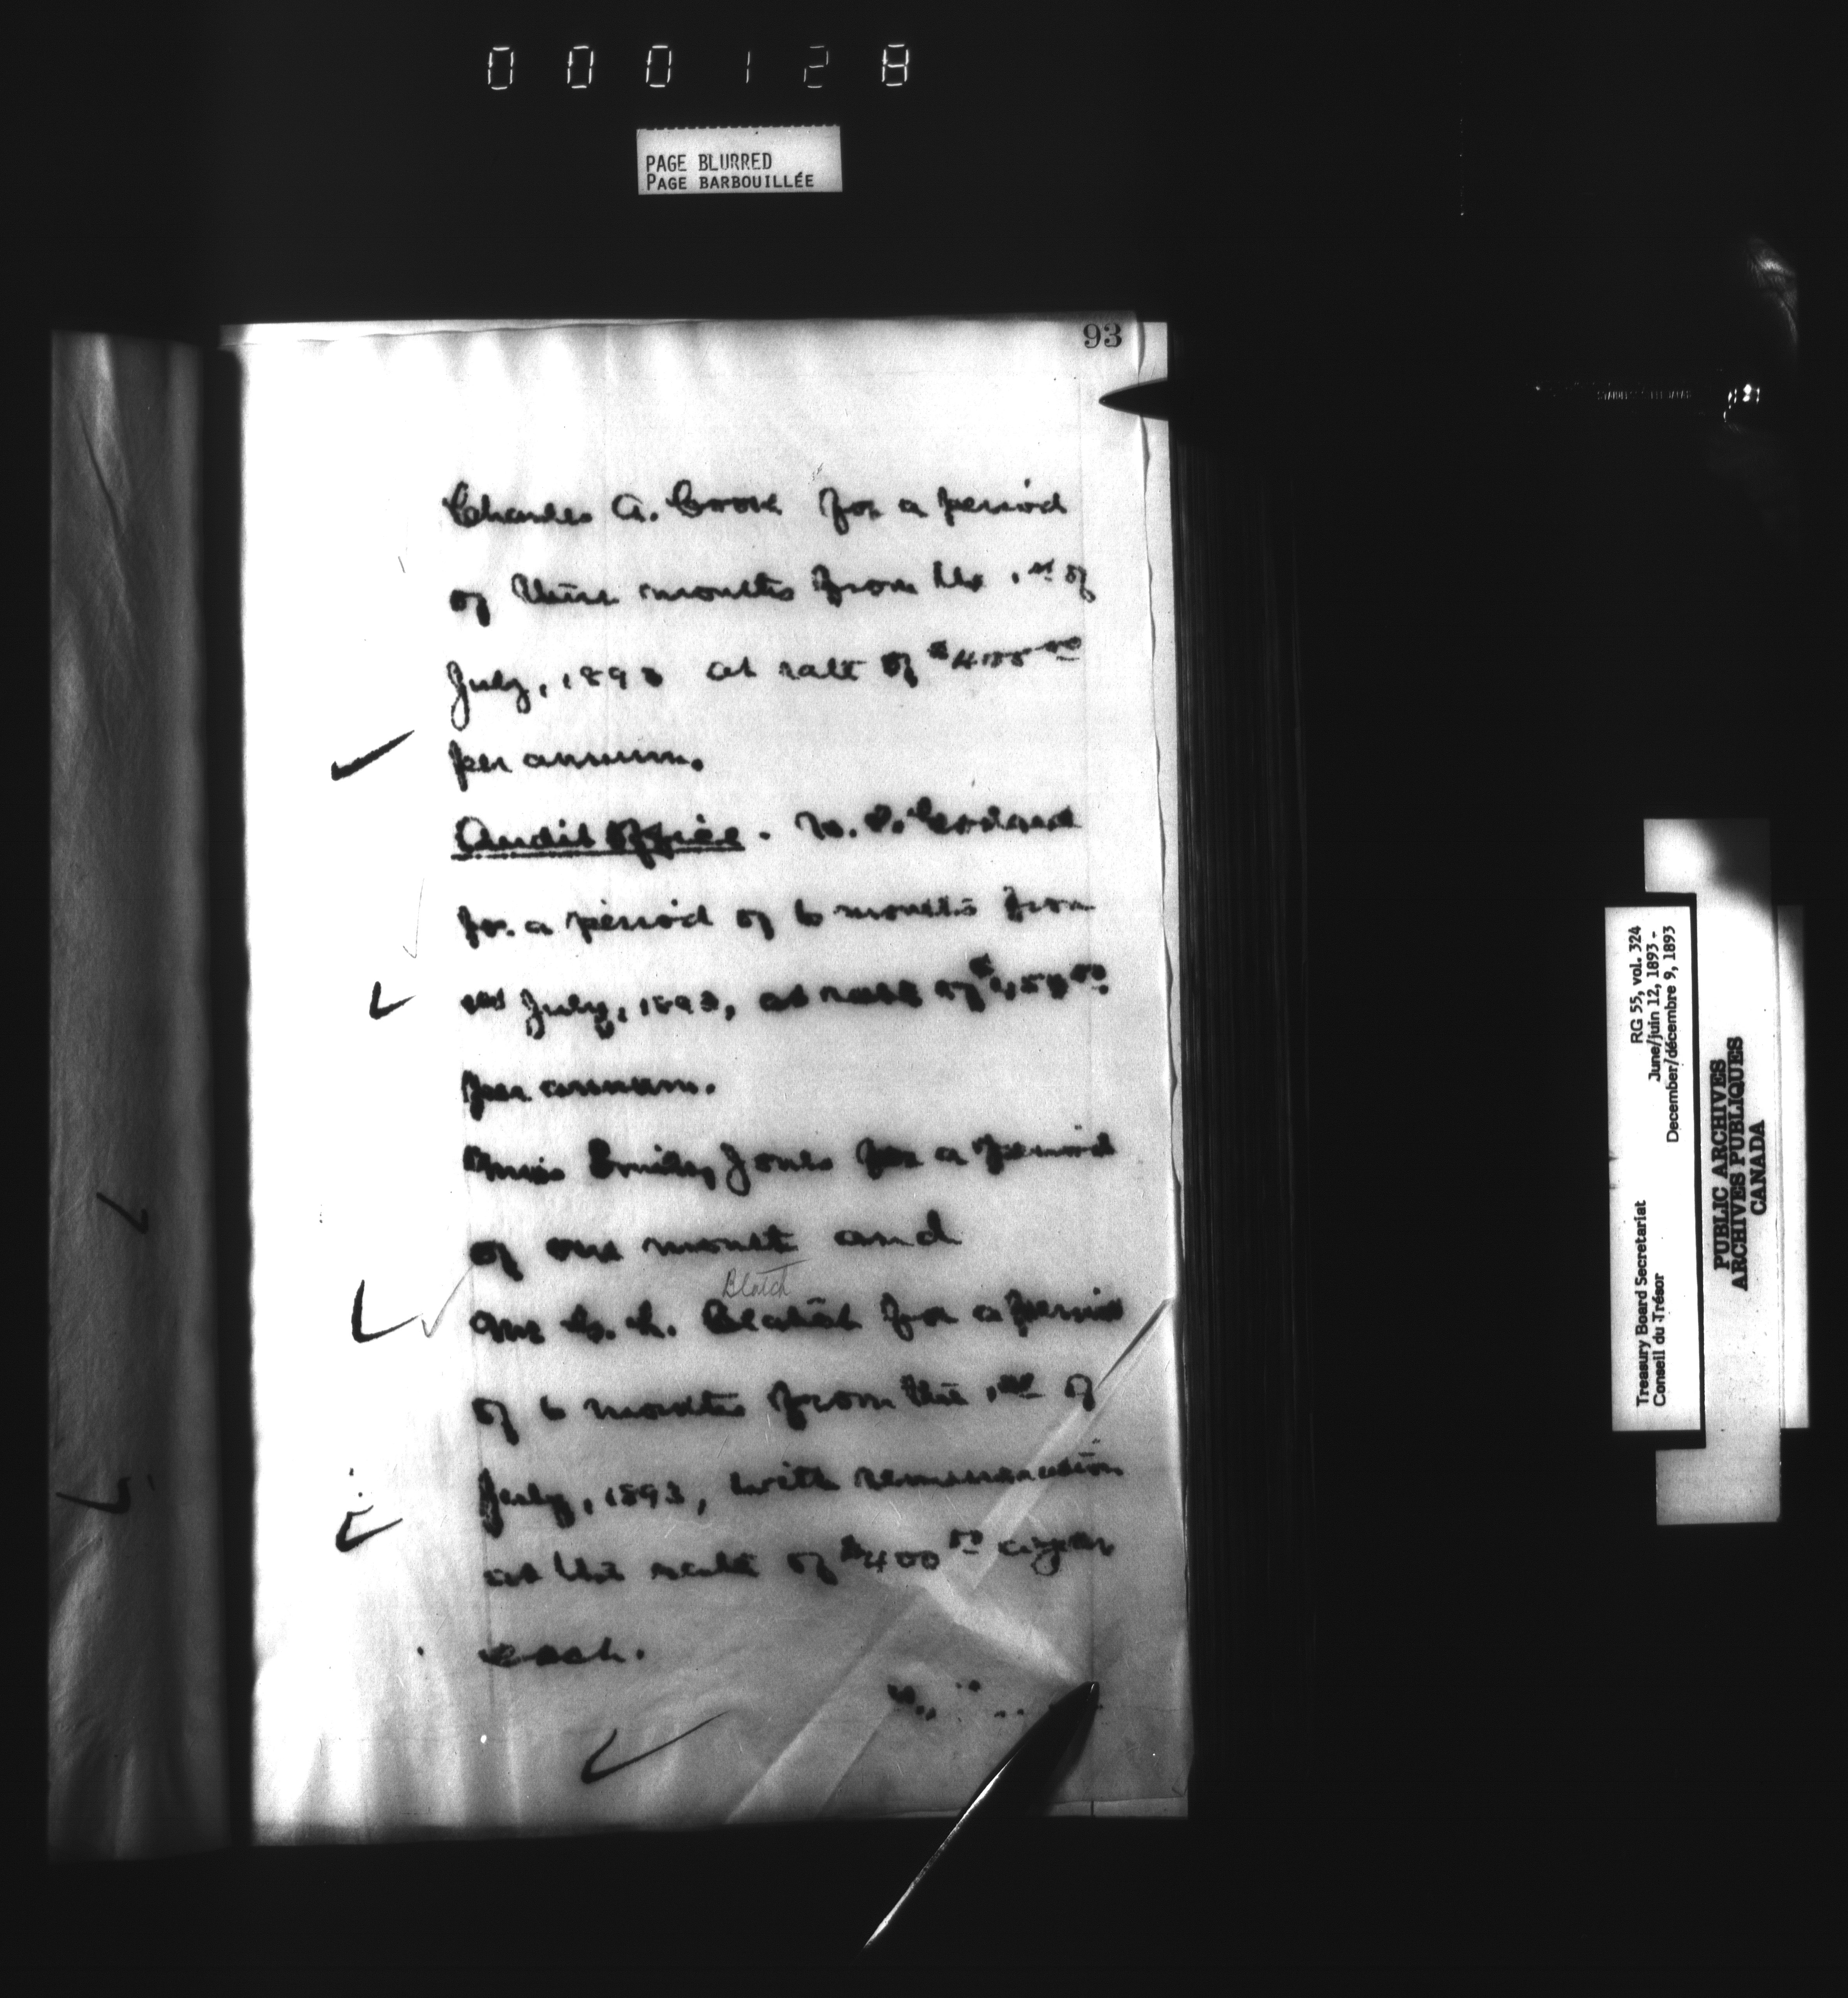 000128
PAGE BLURRED
PAGE BARBOUILLÉE
93
Charles A. Cook for a period
of three months from the 1st of
July, 1893 at rate of $400 00
per annum.
Audit Office. W.
for a period of 6 months from
1st July, 1893, at rate of
per annum.
Miss Emily Jones for a period
of one month and
Blatch
Mr G. L. Blatch for a period
of 6 months from the 1st of
July, 1893, with remuneration
at the rate of $400 00 a year
each.
Treasury Board Secretariat RG 55, vol. 324
Conseil du Trésor June/juin 12, 1893 -
December/décembre 9, 1893
PUBLIC ARCHIVES
ARCHIVES PUBLIQUES
CANADA